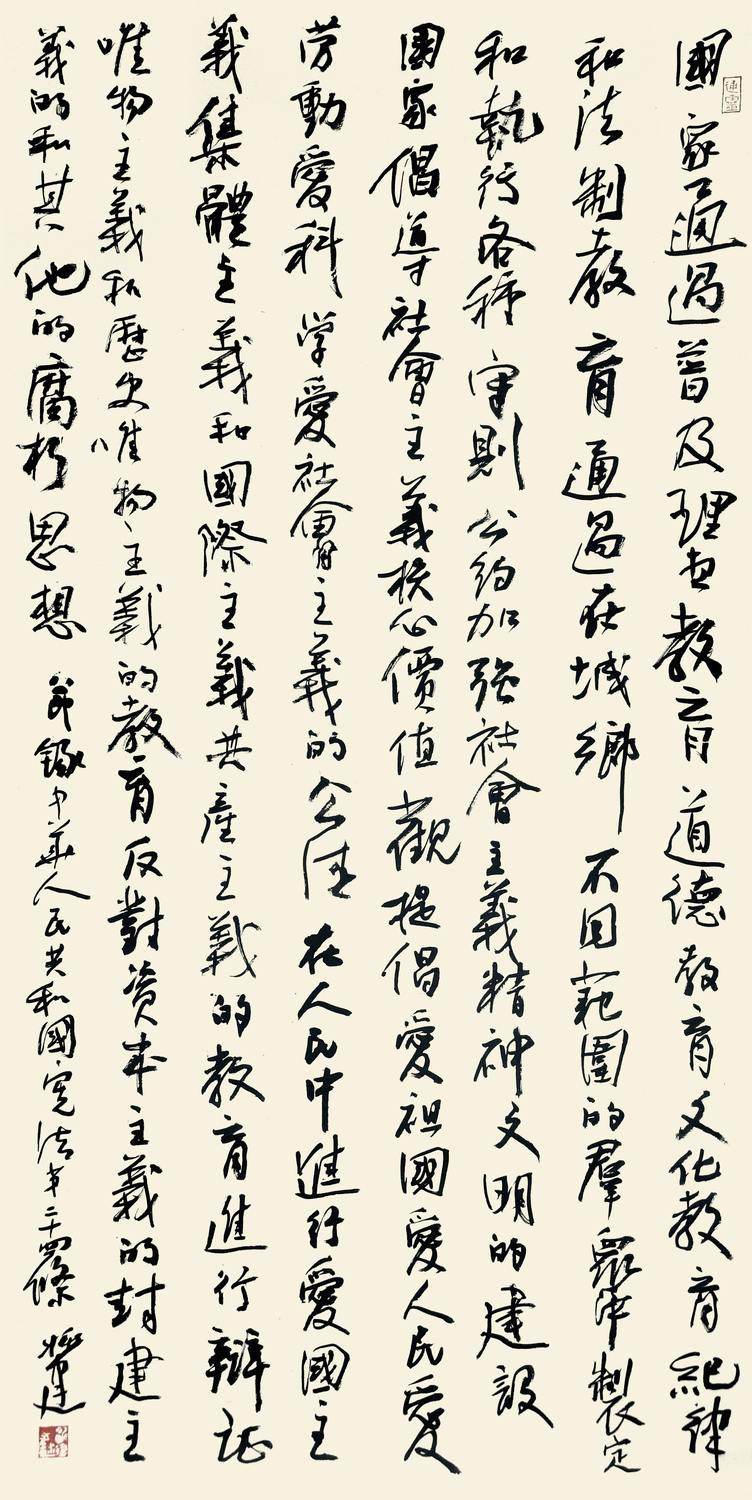 國家通過普及理想教育道德教育文化教育紀律
和法制教育通過在城鄉不同範圍的羣衆中製定
和執行各種守則公約加強社會主義精神文明的建設
國家倡導社會主義核心價值觀提倡愛祖國愛人民愛
劳動愛科学愛社會主義的公德在人民中進行愛國主
義集體主義和國際主義共產主義的教育進行辯证
唯物主義和歷史唯物主義的教育反對资本主義的封建主
義的和其他的腐朽思想 節錄中華人民共和國憲法第二十四條